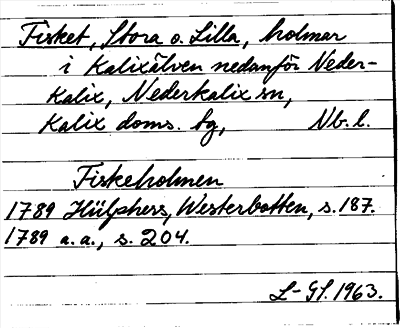 Fisket, Stora o. Lilla, holmar
i Kalixälven nedanför Neder-
kalix, Nederkalix sn,
Kalix doms. tg, Nb. l.
Fiskeholmen
1789 Hülphers, Westerbotten, s. 187.
1789 a. a., s. 204.
L-Gf. 1963.